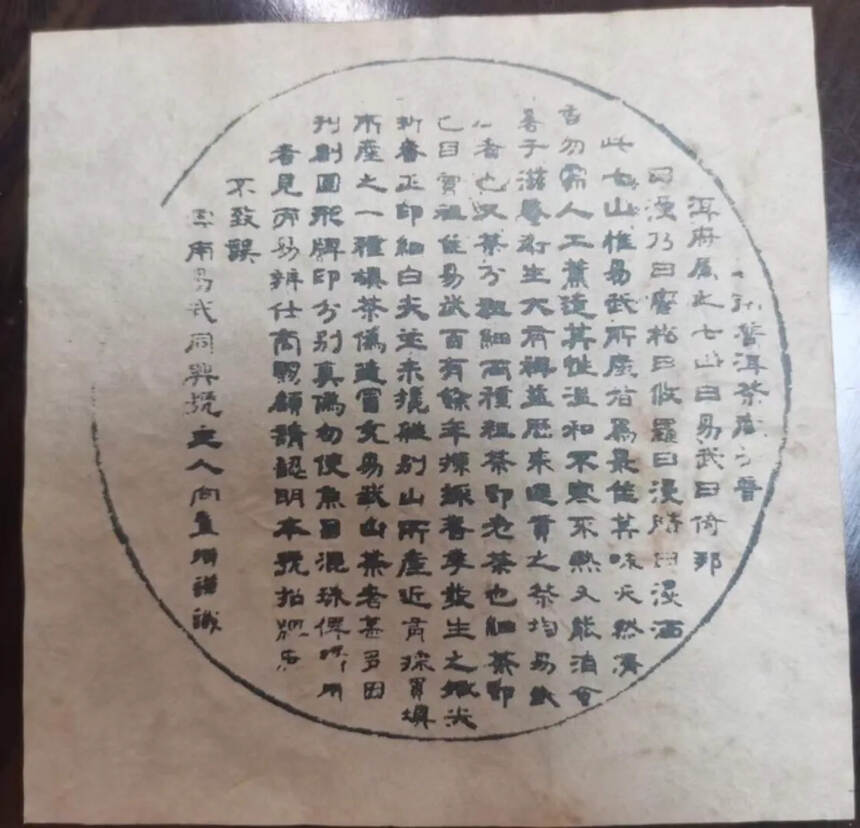 普洱茶產 普
洱府屬之七山曰易武曰倚邦
曰漫乃曰 曰攸羅曰漫 曰漫洒
此七山惟易武所產者為最佳其味天然
香勿需人工薰造其性溫和不寒不熱又能消食
暑予滋養衛生大有裨益歷來進貢之茶均易武
者也又茶分粗細兩種粗茶即老茶也細茶即
祖住易武百有餘年揀採春季發生之嫩尖
新春正印細白尖並未攙雜別山所產近有採買壩
所產之一種壩茶偽造冒充易武山茶者甚多因
刊刻圓形牌印分別真偽勿使魚目混珠俾 用
者見而易辨仕商賜顧請認明本號招牌庶
不致誤
雲南易武同興號主人向 謹識